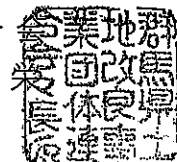 群馬県土
地改良事
業団体連
会
栄